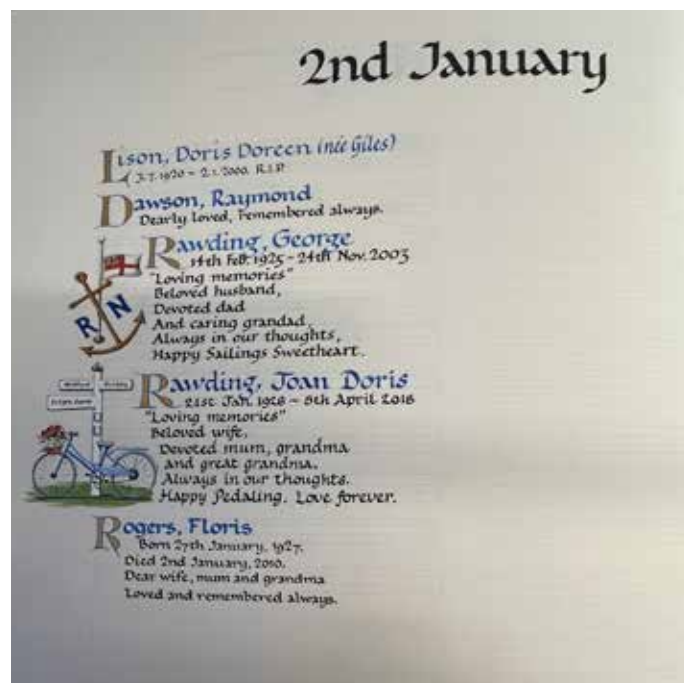 2nd January
Lison, Doris Doreen (née Giles)
3.7.1920 ~ 2.1.2000. R.I.P
Dawson, Raymond
Dearly loved, remembered always.
Rawding, George
14th Feb. 1925 - 24th Nov. 2003
"Loving memories"
Beloved husband,
Devoted dad
And caring grandad,
Always in our thoughts,
Happy Sailings Sweetheart.
R N
Rawding, Joan Doris
21st. Jan. 1926 ~ 8th April 2016
"Loving memories"
Beloved wife,
Devoted mum, grandma
and great grandma.
Always in our thoughts.
Happy Pedaling. Love forever.
Rogers, Floris
Born 27th January, 1927.
Died 2nd January, 2010.
Dear wife, mum and grandma
Loved and remembered always.